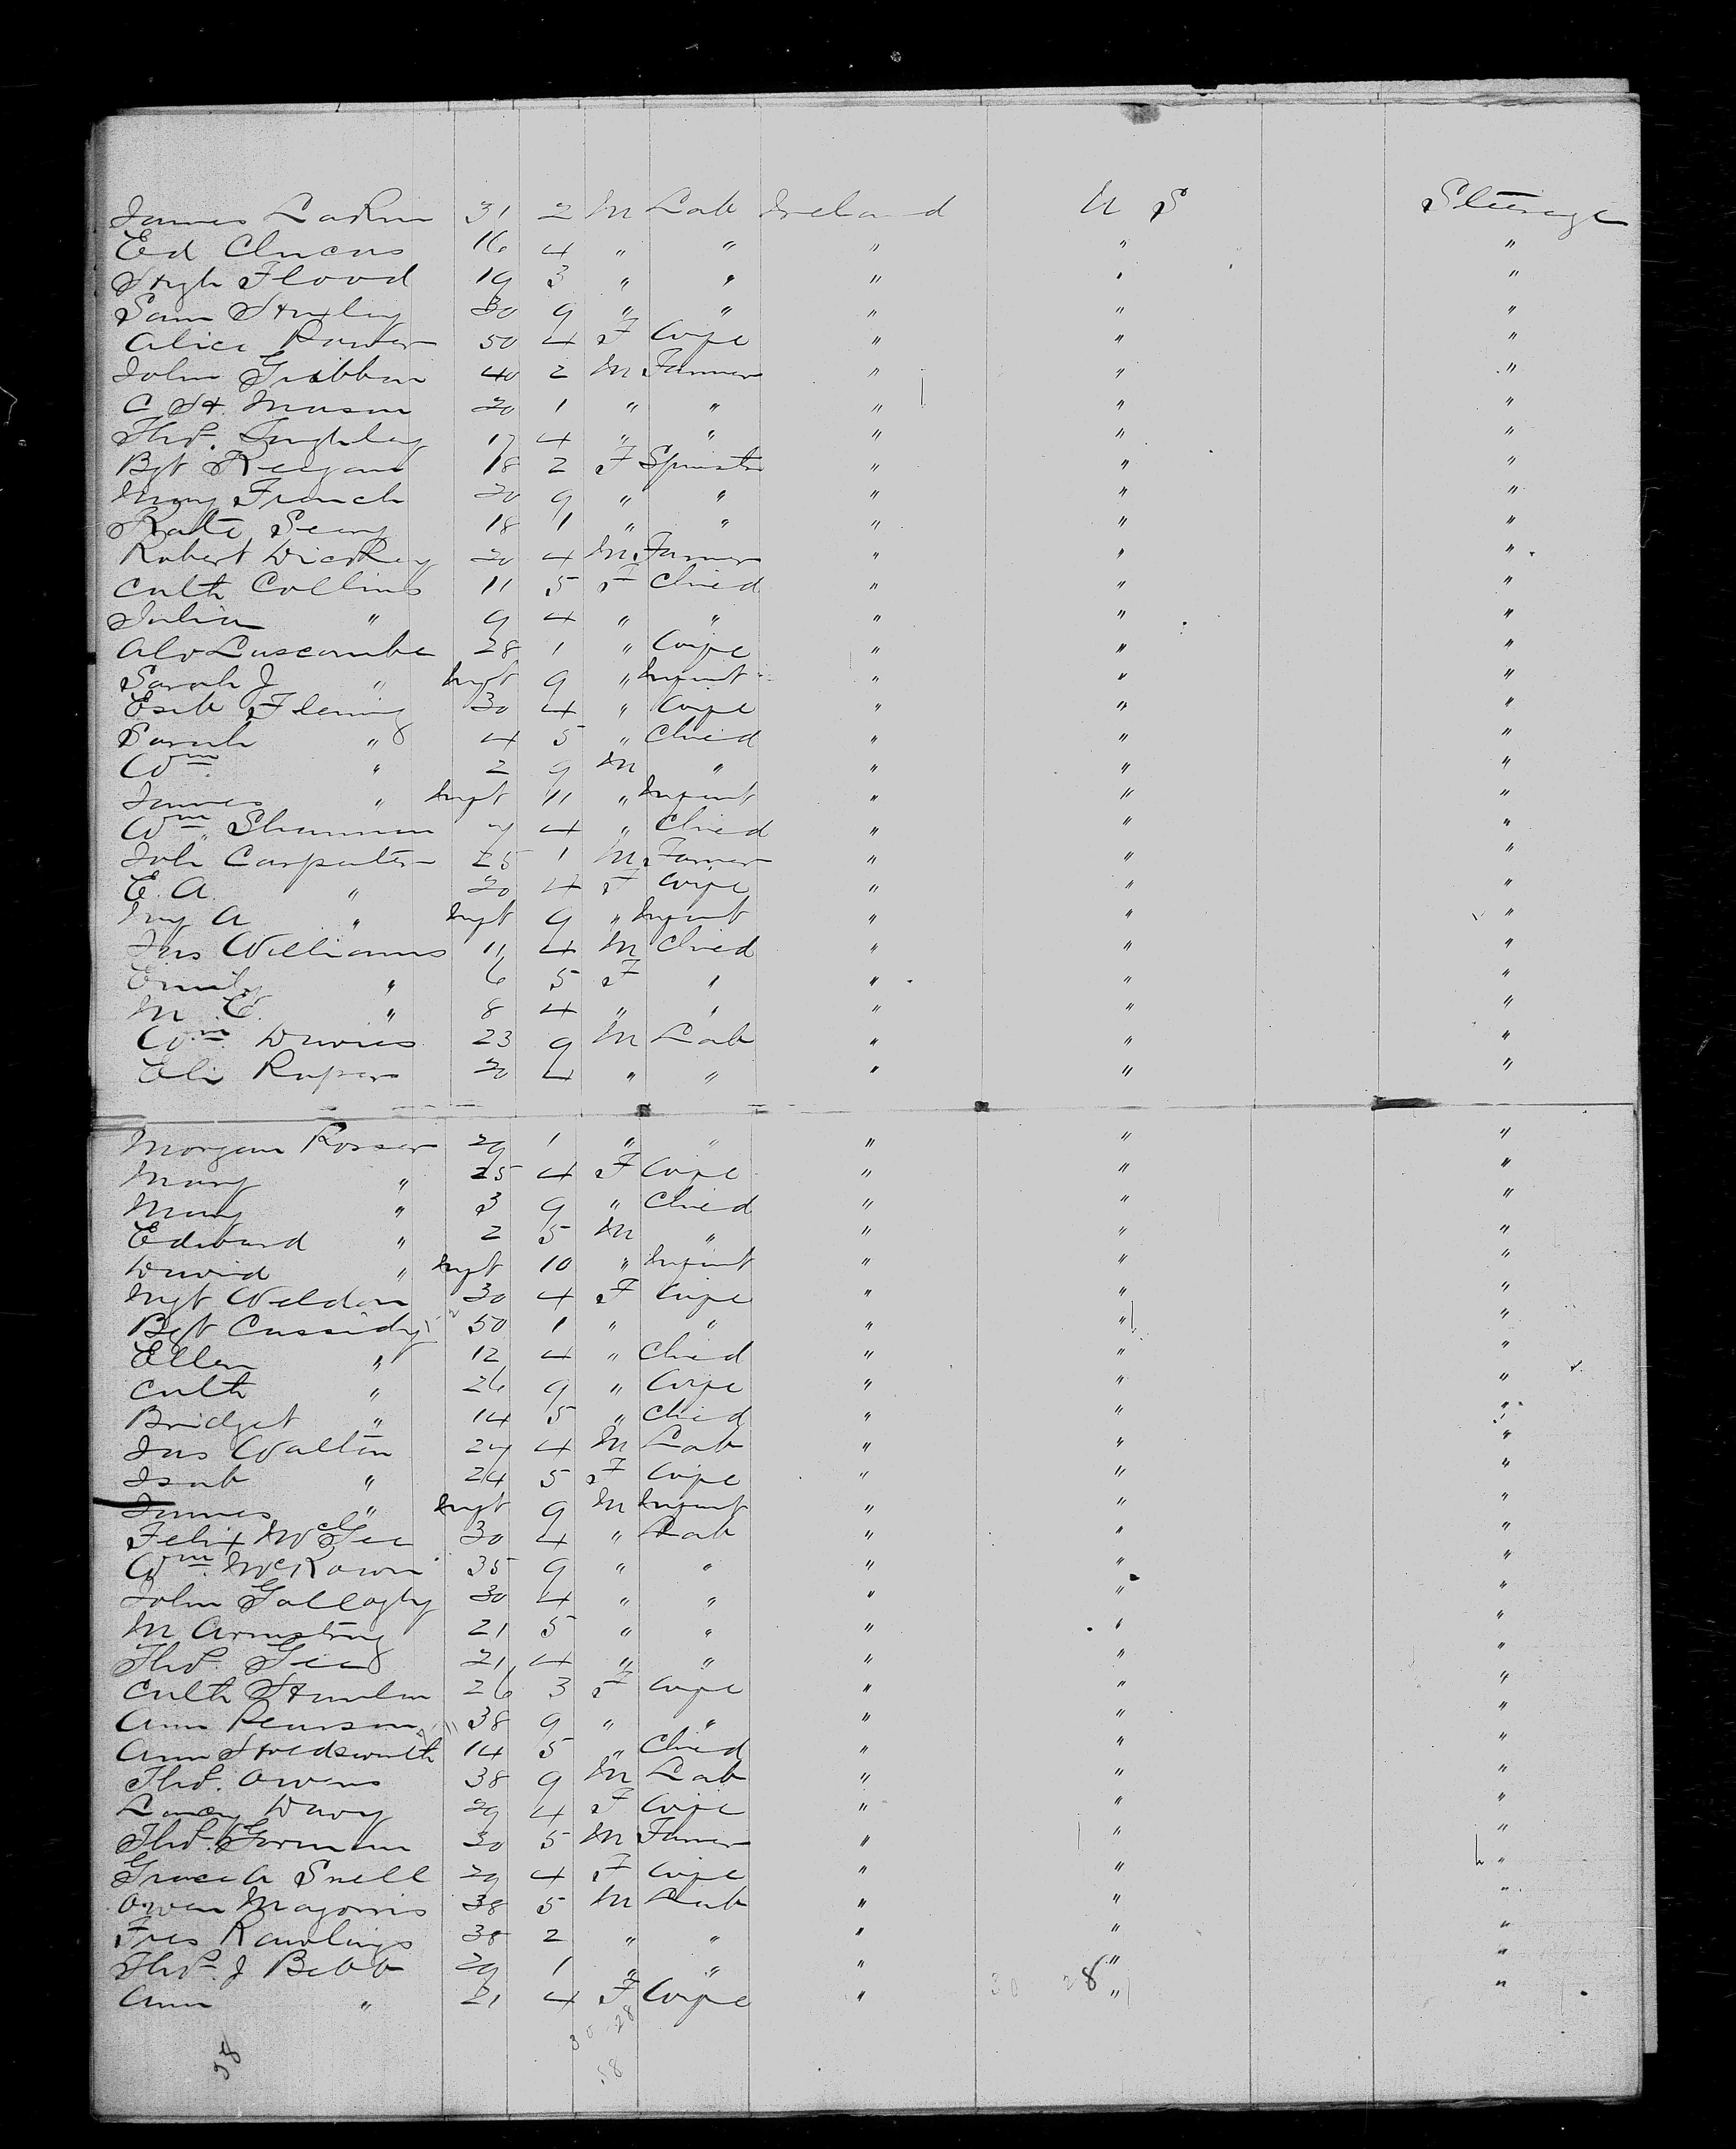 James Larkin 31 2 M Lab Ireland U S Steerage
Ed Clucas 16 4 " " " " "
Hugh Flood 19 3 " " " " "
Sam Huxley 30 9 " " " " "
Alice Power 50 4 F Wife " " "
John Gribbon 40 2 M Farmer " " "
C H. Mason 20 1 " " " " "
Thos. 17 4 " " " " "
Bgt Keegan 18 2 F Spinster " " "
Mary French 20 9 " " " " "
Kate 18 1 " " " " "
Robert Dickey 20 4 M Farmer " " "
Cath Collins 11 5 F Child " " "
Julia " 9 4 " " " " "
Luscombe 28 1 " Wife " " "
Sarah J " Inft 9 " Infant " " "
Fleming 30 4 " Wife " " "
Sarah " 4 5 " Child " " "
Wm " 2 9 M " " " "
James " Inft 11 " Infant " " "
Wm Shannon 7 4 " Child " " "
Joh Carpenter 25 1 M Farmer " " "
E. A. " 20 4 F Wife " " "
A " Inft 9 " Infant " " "
Jas Williams 11 4 M Child " " "
Emily " 6 5 F " " " "
M E. " 8 4 " " " " "
Wm. Davies 23 9 M Lab " " "
Eli 20 4 " " " " "
Morgan Rosser 29 1 " " " " "
Mary " 25 4 F Wife " " "
Mary " 3 9 " Child " " "
Edward " 2 5 M " " " "
David " Inft 10 " Infant " " "
Mgt Weldon 30 4 F Wife " " "
Bgt Cassidy 50 1 " " " " "
Ellen " 12 4 " Child " " "
Cath " 26 9 " Wife " " "
Bridget " 14 5 " Child " " "
Jas Walton 27 4 M Lab " " "
Isab " 24 5 F Wife " " "
James " Inft 9 M Infant " " "
Felix McGee 30 4 " Lab " " "
Wm. McKown 35 9 " " " " "
John Gallaghy 30 4 " " " " "
M Armstrong 21 5 " " " " "
Thos. 21 4 " " " " "
Cath Hanlon 26 3 F Wife " " "
Ann Pearson 38 9 " " " " "
Ann Holdsworth 14 5 " Child " " "
Thos. Owens 38 9 M Lab " " "
Davy 29 4 F Wife " " "
Thos. Gorman 30 5 M Farmer " " "
Grace A Snell 29 4 F Wife " " "
Owen 38 5 M Lab " " "
Fres Rawlings 38 2 " " " " "
Thos. J Bebb 29 1 " " " " "
Ann " 21 4 F Wife " " "
30 28
30 28
58
58